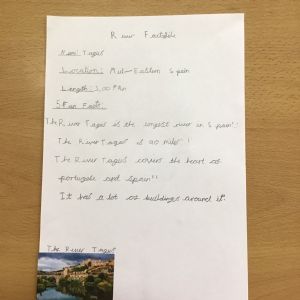 River Factfile
Name: Tagus
Location: Mid-Eastern Spain
Length: 1,007 km
5 Fun Facts:
The River Tagus is the longest river in Spain!
The River Tagus is 90 miles!
The River Tagus covers the heart of
portugale and spain!!
It has a lot of buildings around it.
The River Tagus